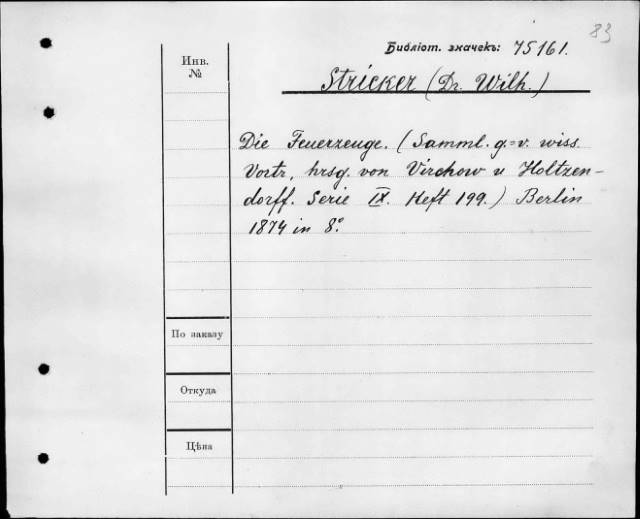 83
Библіот. значекъ: 75161.
Инв.
№
Stricker (Dr. Wilh.)
Die Feuerzeuge. (Samml. g.=v. wiss.
Vortr., hrsg. von Virchow u Holtzen-
dorff. Serie IX. Heft 199.) Berlin
1874 in 8°.
По заказу
Откуда
Цѣна